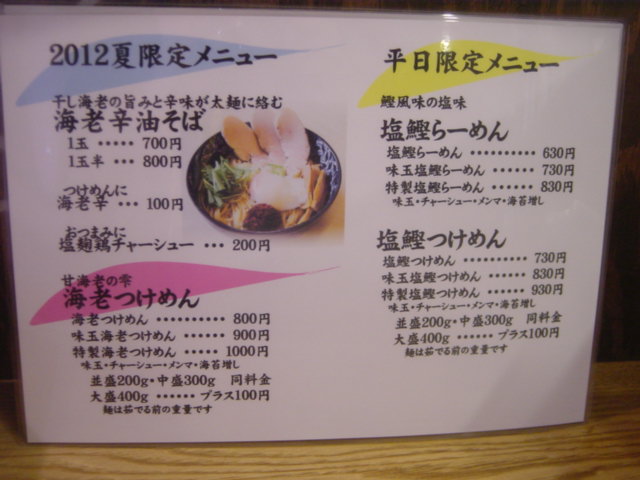 2012夏限定メニュー
干し海老の旨みと辛味が太麺に絡む
海老辛油そば
1玉 ・・・・・ 700円
1玉半 ・・・ 800円
つけめんに
海老辛 ・・・ 100円
おつまみに
塩麹鶏チャーシュー ・・・ 200円
甘海老の雫
海老つけめん
海老つけめん ・・・・・・・・・・ 800円
味玉海老つけめん ・・・・・・ 900円
特製海老つけめん ・・・・・・ 1000円
味玉・チャーシュー・メンマ・海苔増し
並盛200g・中盛300g 同料金
大盛400g ・・・・・・ プラス100円
麺は茹でる前の重量です
平日限定メニュー
鰹風味の塩味
塩鰹らーめん
塩鰹らーめん ・・・・・・・・・・ 630円
味玉塩鰹らーめん ・・・・・・ 730円
特製塩鰹らーめん ・・・・・・ 830円
味玉・チャーシュー・メンマ・海苔増し
塩鰹つけめん
塩鰹つけめん ・・・・・・・・・・ 730円
味玉塩鰹つけめん ・・・・・・ 830円
特製塩鰹つけめん ・・・・・・ 930円
味玉・チャーシュー・メンマ・海苔増し
並盛200g・中盛300g 同料金
大盛400g ・・・・・・ プラス100円
麺は茹でる前の重量です